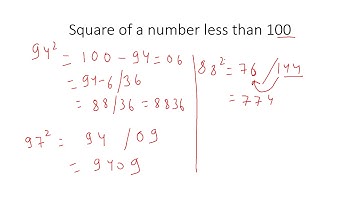 Square of a number less than 100
94² = 100 - 94 = 06
= 94-6/36
= 88/36 = 8836
97² = 94 / 09
= 9409
88² = 76 / 144
= 774